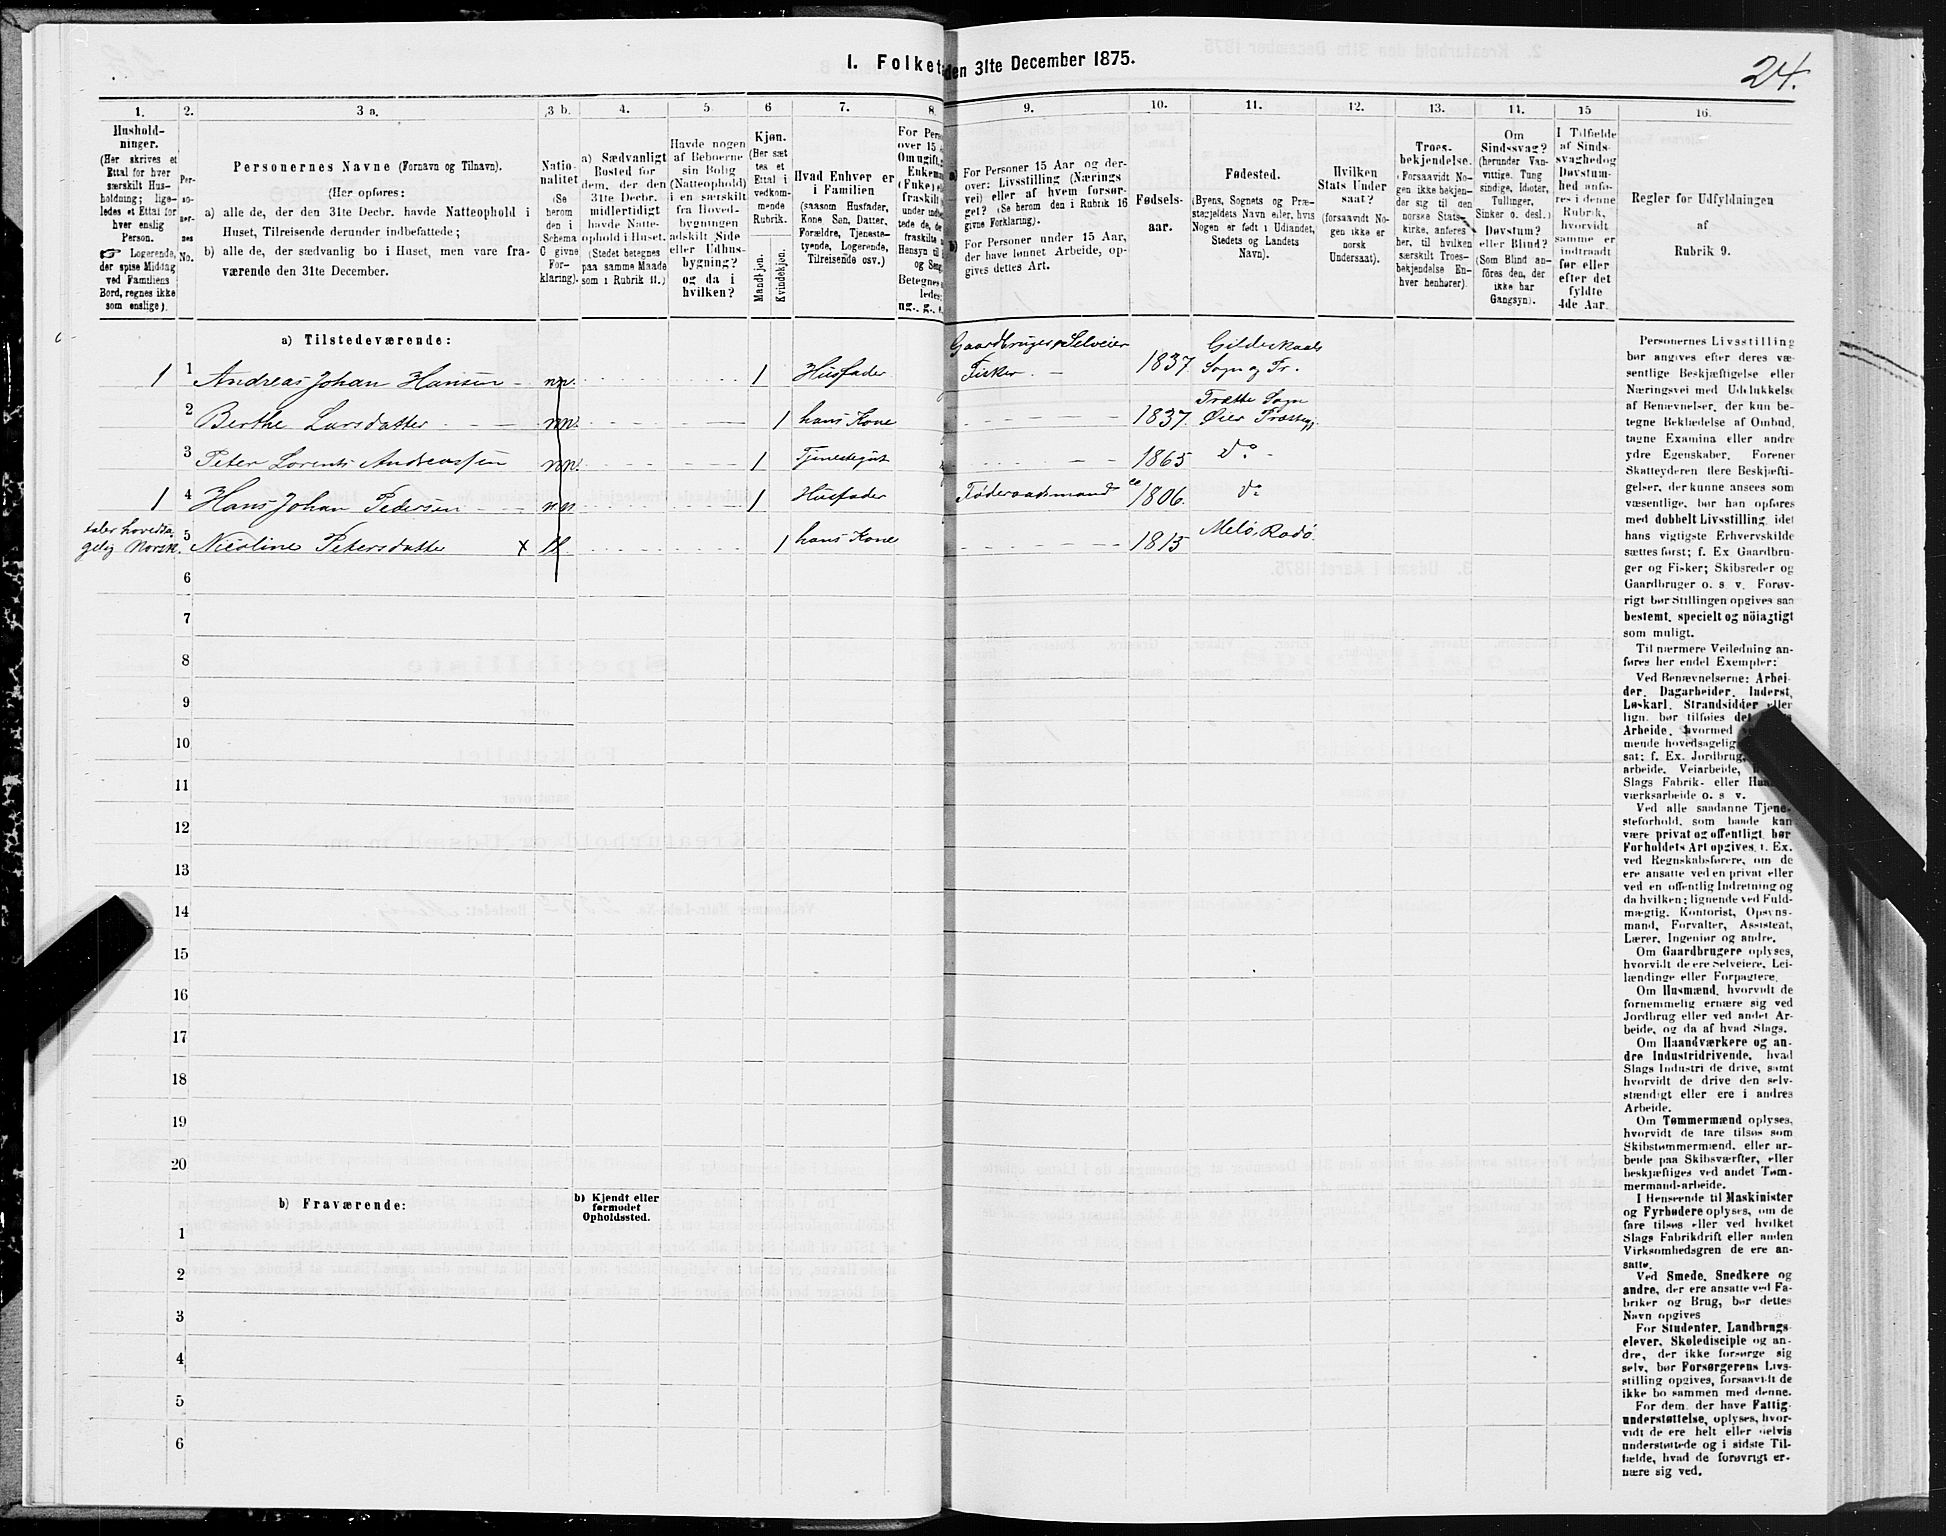 I. Folketæ
den 31te December 1875.
24.
1.
Hushold-
ninger.
(Her skrives et
Ettal for hver
særskilt Hus-
holdning; lige-
ledes et Ettal for
hver enslig
Person.
☞ Logerende,
der spise Middag
ved Familiens
Bord, regnes ikke
som enslige).
2.
Per-
so-
ner-
nes
No.
3 a.
Personernes Navne (Fornavn og Tilnavn).
(Her opføres:
a) alle de, der den 31te Decbr. havde Natteophold i
Huset, Tilreisende derunder indbefattede;
b) alle de, der sædvanlig bo i Huset, men vare fra-
værende den 31te December.
3 b.
Natio-
nalitet
(Se
herom
den i
Schema
C givne
For-
klaring).
4.
a) Sædvanligt
Bosted for
dem, der den
31te Decbr.
midlertidigt
havde Natte-
ophold i Huset.
(Stedet betegnes
paa samme Maade
som i Rubrik 11.)
5.
Havde nogen
af Beboerne
sin Bolig
(Natteophold)
i en særskilt
fra Hoved-
bygningen
adskilt Side
eller Udhus-
bygning?
og da i
hvilken?
6
Kjøn.
(Her sæt
tes et
Ettal i
vedkom-
mende
Rubrik.
Mandkjøn.
Kvindekjøn.
7.
Hvad Enhver er
i Familien
(saasom Husfader,
Kone Søn, Datter,
Forældre, Tjeneste-
tyende, Logerende,
Tilreisende osv.)
8
For Pers
over 15
Om ugift,
Enkem
(Enke)
fraskilt
9.
a) For Personer 15 Aar og der-
over: Livsstilling (Nærings
vei) eller af hvem forsør-
get? (Se herom den i Rubrik 16
givne Forklaring).
b) For Personer under 15 Aar,
der have lønnet Arbeide, op-
gives dettes Art.
10.
Fødsels-
aar.
11.
Fødested.
(Byens, Sognets og Præ-
stegjeldets Navn eller, hvis
Nogen er født i Udlandet,
Stedets og Landets
Navn).
12.
Hvilken
Stats Under
saat?
(forsaavidt No-
gen ikke er
norsk
Undersaat).
13.
Troes-
bekjendelse.
(Forsaavidt No-
gen ikke bekjen-
der sig til den
norske Stats-
kirke, anføres
her, til hvilken
særskilt Troes-
bekjendelse En-
hver henhører).
14.
Om
Sindssvag?
(herunder Van-
vittige, Tung
sindige, Idioter,
Tullinger,
Sinker o. desl.)
Døvstum?
eller Blind?
(Som Blind an-
føres den, der
ikke har
Gangsyn).
15
I Tilfælde
af Sinds-
svaghed og
Døvstum-
hed anfø-
res i denne
Rubrik,
hvorvidt
samme er
indtraadt
før eller
efter det
fyldte
4de Aar.
16.
Regler for Udfyldningen
af
Rubrik 9.
a) Tilstedeværende:
1 1 Andreas Johan Hansen nn. 1 Husfader Gaardbruger Selveier Fisker. 1837. Gildeskaals Sogn og Pr.
2 Berthe Larsdatter nn. 1 hans Kone 1837. Sogn Øier Præstegj
3 Peter Lorents Andreassen nn. 1 Tjenestegut 1865 do
1 4 Hans Johan Pedersen nn 1 Husfader Føderaadsmand 1806. do
taler hovedsa-
gelig Norsk. 5 Nicoline Petersdatter x 1 hans Kone 1815 Melø, Rødø.
6
7
8
9
10
11
12
13
14
15
16
17
18
19
20
b) Fraværende:
b) Kjendt eller
formodet
Opholdssted.
1
2
3
4
5
6
Personernes Livsstilling
bør angives efter deres væ-
sentlige Beskjæftigelse eller
Næringsvei med Udelukkelse
af Benævnelser, der kun be-
tegne Beklædelse af Ombud,
tagne Examina eller andre
ydre Egenskaber. Forener
Skatteyderen flere Beskjæfti-
gelser, der kunne ansees som
væsentlige, bør han opføres
med dobbelt Livsstilling, idet
hans vigtigste Erhvervskilde
sættes først; f. Ex Gaardbru-
ger og Fisker; Skibsreder og
Gaardbruger o. s v. Forøv-
rigt bør Stillingen opgives saa
bestemt, specielt og nöiagtigt
som muligt.
Til nærmere Veiledning an-
føres her endel Exempler:
Ved Benævnelserne: Arbei-
der, Dagarbeider, Inderst,
Løskarl, Strandsidder eller
lign. bør tilføies det
Arbeide, hvormed
mende hovedsagelig
sat; f. Ex. Jordbrug,
arbeide, Veiarbeide,
Slags Fabrik- eller Haand-
værksarbeide o. s v.
Ved alle saadanne Tjene-
steforhold, som baade kan
være privat og offentligt, bør
Forholdets Art opgives, f. Ex.
ved Regnskabsførere, om de
ere ansatte ved en privat eller
ved en offentlig Indretning og
da hvilken; lignende ved Fuld-
mægtig, Kontorist, Opsyns-
mand, Forvalter, Assistent,
Lærer, Ingeniør og andre.
Om Gaardbrugere oplyses,
hvorvidt de ere Selveiere, Lei-
lændinge eller Forpagtere.
Om Husmænd, hvorvidt de
fornemmelig ernære sig ved
Jordbrug eller ved andet Ar-
beide, og da af hvad Slags.
Om Haandværkere og an-
dre Industridrivende, hvad
Slags Industri de drive, samt
hvorvidt de drive den selv-
stændigt eller ere i andres
Arbeide.
Om Tømmermænd oplyses,
hvorvidt de fare tilsøs som
Skibstømmermænd, eller ar-
beide paa Skibsværfter, eller
beskjæftiges ved andet Tøm-
mermand-arbeide.
I Henseende til Maskinister
og Fyrbødere oplyses, om de
fare tilsøs eller ved hvilket
Slags Fabrikdrift eller anden
Virksomhedsgren de ere an-
satte.
Ved Smede, Snedkere og
andre, der ere ansatte ved Fa-
briker og Brug, bør dettes
Navn opgives
For Studenter, Landbrugs-
elever, Skoledisciple og an-
dre, der ikke forsørge sig
selv, bør Forsørgerens Livs-
stilling opgives, forsaavidt de
ikke bo sammen med denne.
For dem, der have Fattig-
understøttelse, oplyses, hvor-
vidt de ere helt eller delvis
understøttede og i sidste Til-
fælde, hvad de forøvrigt er-
nære sig ved.